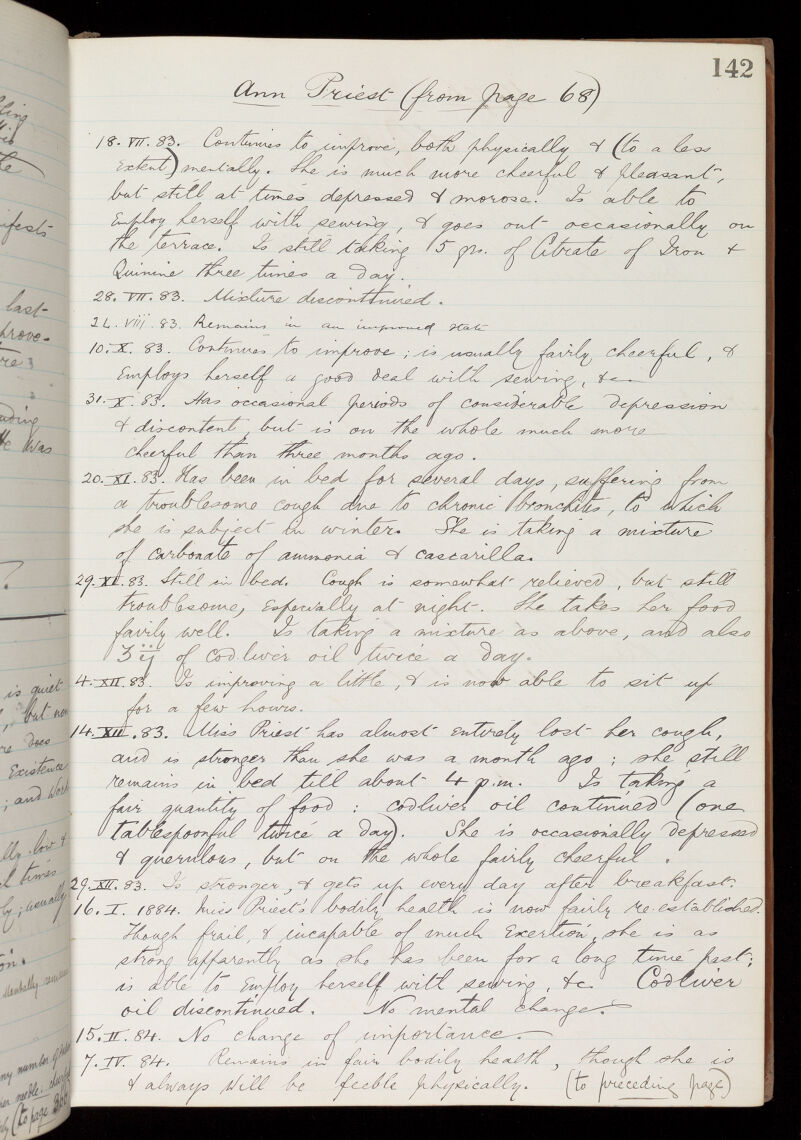 142
Ann Priest (from page 68)
18. VII. 83. Continues to improve, both physically & (to a less
extent) mentally. She is much more cheerful & pleasant,
but still at times depressed & morose. Is able to
employ herself with sewing, & goes out occasionally on
the terrace. Is still taking 5 grs. of Citrate of Iron &
Quinine three times a day.
28. VII. 83. Mixture discontinued.
22. VIII. 83. Remains in an improved state
10. X. 83. Continues to improve; is usually fairly cheerful, &
employs herself a good deal with sewing, &c.
31. X. 83. Has occasional periods of considerable depression
& discontent, but is on the whole much more
cheerful than three months ago.
20. XI. 83. Has been in bed for several days, suffering from
a troublesome cough due to chronic bronchitis, to which
she is subject in winter. She is taking a mixture
of carbonate of ammonia & cascarilla.
29. XI. 83. Still in bed. Cough is somewhat relieved, but still
troublesome, especially at night. She takes her food
fairly well. Is taking a mixture as above, and also
ʒij of cod.liver oil twice a day.
4. XII. 83. Is improving a little, & is now able to sit up
for a few hours.
14. XII. 83. Miss Priest has almost entirely lost her cough,
and is stronger than she was a month ago; she still
remains in bed till about 4 p.m. Is taking a
fair quantity of food: codliver oil continued (one
tablespoonful twice a day). She is occasionally depressed
& querulous, but on the whole fairly cheerful.
29. XII. 83. Is stronger, & gets up every day after breakfast.
16. I. 1884. Miss Priest's bodily health is now fairly re-established.
Though frail, & incapable of much exertion, she is as
strong apparently as she has been for a long time past;
is able to employ herself with sewing, &c. Codliver
oil discontinued. No mental change.
15. II. 84. No change of importance.
7. IV. 84. Remains in fair bodily health, though she is
& always will be feeble physically. (to preceding page)